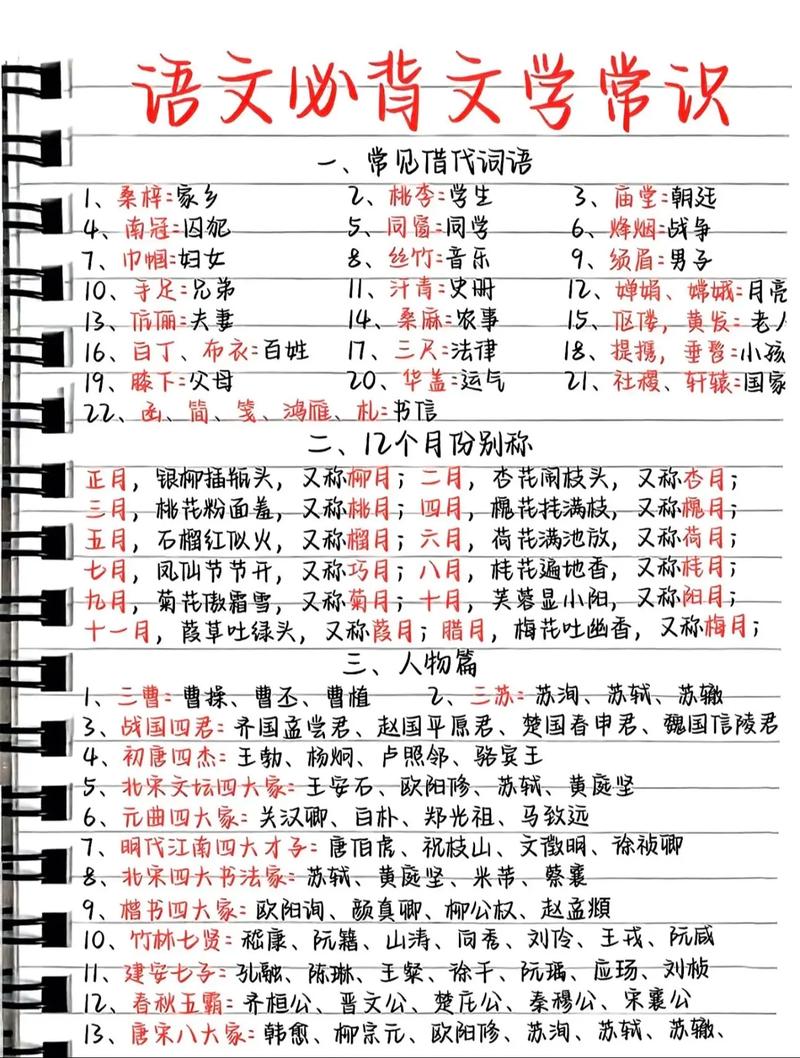 语文必背文学常识
一、常见借代词语
1、桑梓:家乡 2、桃李:学生 3、庙堂:朝廷
4、南冠:囚犯 5、同窗:同学 6、烽烟:战争
7、巾帼:妇女 8、丝竹:音乐 9、须眉:男子
10、手足:兄弟 11、汗青:史册 12、婵娟、嫦娥:月亮
13、伉俪:夫妻 14、桑麻:农事 15、伛偻,黄发:老人
16、白丁、布衣:百姓 17、三尺:法律 18、提携,垂髫:小孩
19、膝下:父母 20、华盖:运气 21、社稷、轩辕:国家
22、函、简、笺、鸿雁、札:书信
二、12个月份别称
正月,银柳插瓶头,又称柳月;二月,杏花闹枝头,又称杏月;
三月,桃花粉面羞,又称桃月;四月,槐花挂满枝,又称槐月;
五月,石榴红似火,又称榴月;六月,荷花满池放,又称荷月;
七月,凤仙节节开,又称巧月;八月,桂花遍地香,又称桂月;
九月,菊花傲霜雪,又称菊月;十月,芙蓉显小阳,又称阳月;
十一月,葭草吐绿头,又称葭月;腊月,梅花吐幽香,又称梅月;
三、人物篇
1、三曹:曹操、曹丕、曹植 2、三苏:苏洵、苏轼、苏辙
3、战国四君:齐国孟尝君、赵国平原君、楚国春申君、魏国信陵君
4、初唐四杰:王勃、杨炯、卢照邻、骆宾王
5、北宋文坛四大家:王安石、欧阳修、苏轼、黄庭坚
6、元曲四大家:关汉卿、白朴、郑光祖、马致远
7、明代江南四大才子:唐伯虎、祝枝山、文徵明、徐祯卿
8、北宋四大书法家:苏轼、黄庭坚、米芾、蔡襄
9、楷书四大家:欧阳询、颜真卿、柳公权、赵孟頫
10、竹林七贤:嵇康、阮籍、山涛、向秀、刘伶、王戎、阮咸
11、建安七子:孔融、陈琳、王粲、徐干、阮瑀、应玚、刘桢
12、春秋五霸:齐桓公、晋文公、楚庄公、秦穆公、宋襄公
13、唐宋八大家:韩愈、柳宗元、欧阳修、苏洵、苏轼、苏辙、